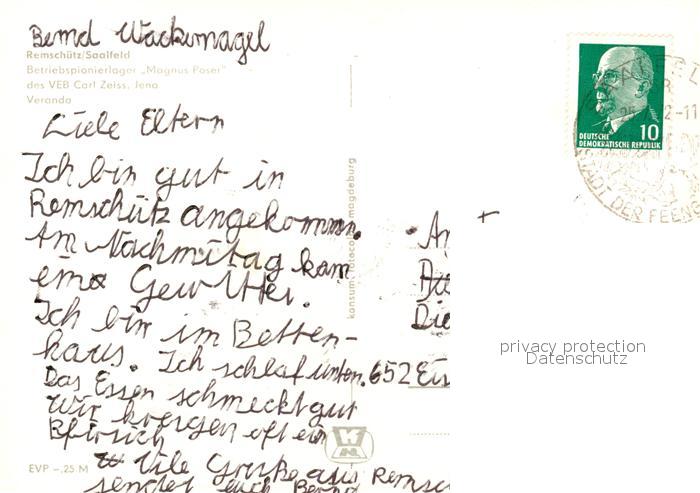 Bernd Wackernagel
Remschütz/Saalfeld
Betriebspionierlager „Magnus Poser"
des VEB Carl Zeiss, Jena
Veranda
Liebe Eltern
Ich bin gut in
Remschütz angekommn.
Am Nachmitag kam
ein Gewitter.
Ich bin im Betten-
haus. Ich schlaf unten.
Das Essen schmeckt gut
Wir kriegen oft ein
Pfirsich
Vile Grüße aus Remsc
sendet euch Bernd
EVP –,25 M
konsum fotoco magdeburg
An
Die
652 Eis
DEUTSCHE
DEMOKRATISCHE REPUBLIK
10
SAALFEL
25
2-11
STADT DER FEENG
privacy protection
Datenschutz